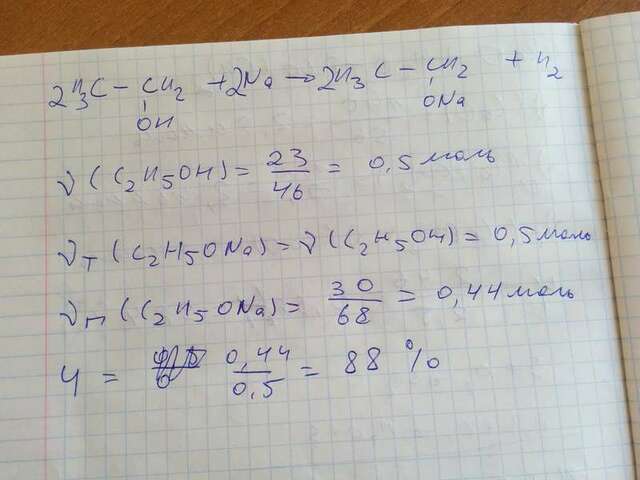 2H₃C – CH₂ + 2Na → 2H₃C – CH₂ + H₂
OH ONa
ν (C₂H₅OH) = 23/46 = 0,5 моль
νт (C₂H₅ONa) = ν (C₂H₅OH) = 0,5 моль
νп (C₂H₅ONa) = 30/68 = 0,44 моль
η = 0,44/0,5 = 88 %